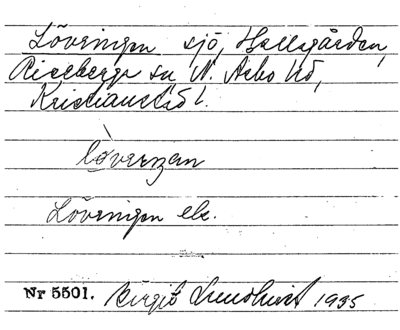 Lövringen sjö, Hallagården,
Riseberga sn N. Åsbo hd,
Kristianstad l.
löverngen
Lövringen ek.
Nr 5501. Birgit Lundkvist 1935